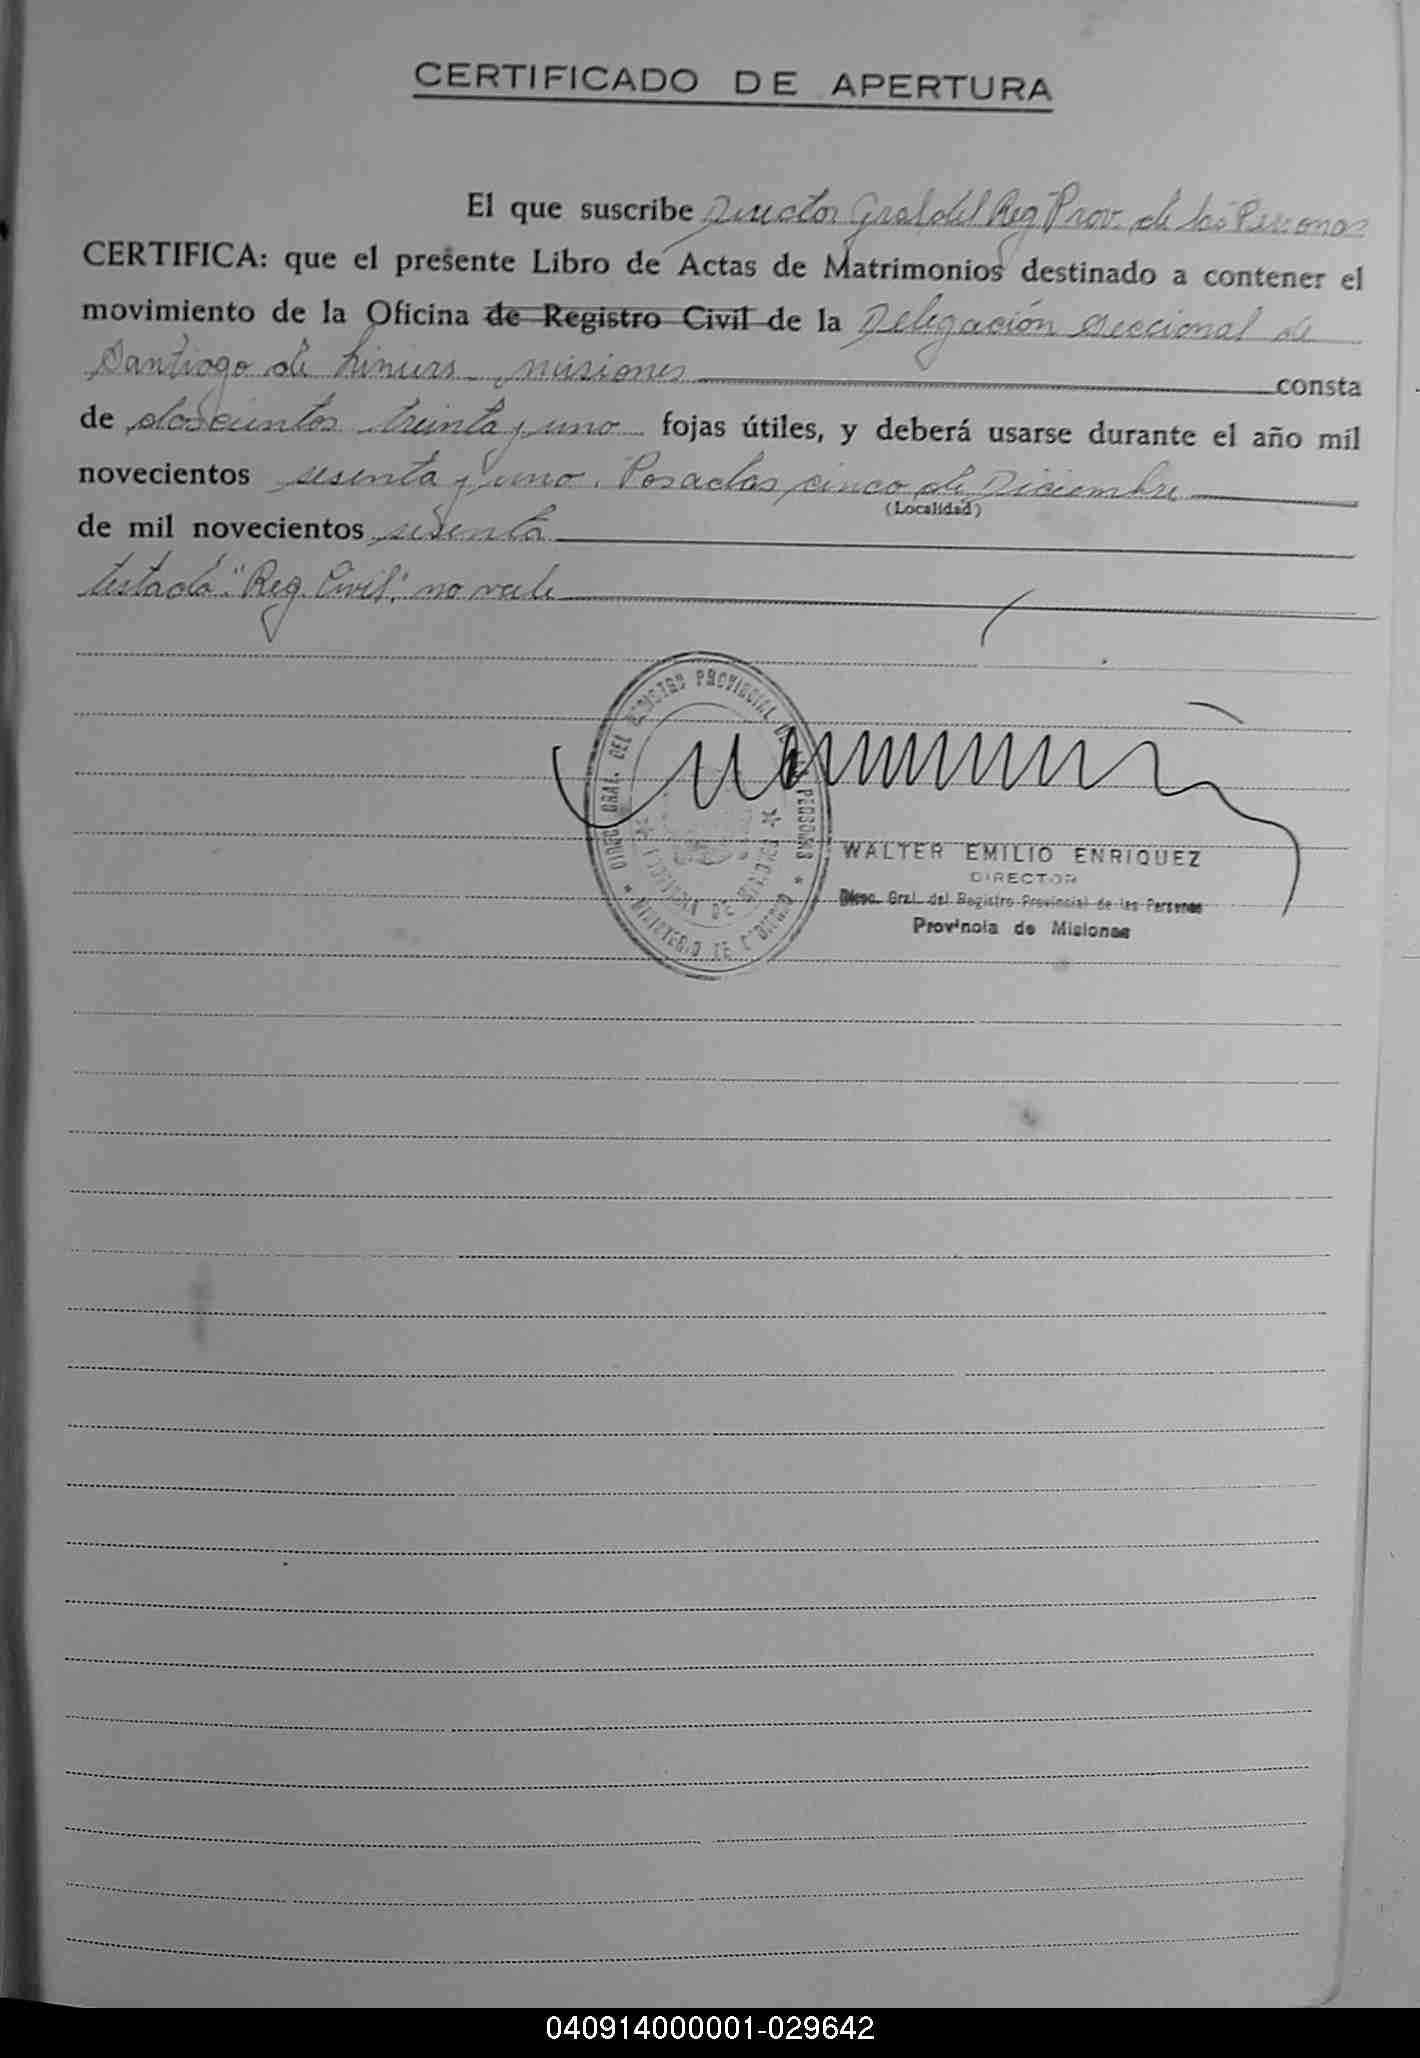 CERTIFICADO DE APERTURA
El que suscribe Director Gral del Reg Prov. de las Personas
CERTIFICA: que el presente Libro de Actas de Matrimonios destinado a contener el
movimiento de la Oficina de Registro Civil de la Delegación seccional de
Santiago de Liniers - misiones consta
de doscientos treinta y uno fojas útiles, y deberá usarse durante el año mil
novecientos sesenta y uno. Posadas, cinco de Diciembre
(Localidad)
de mil novecientos sesenta
testado: "Reg. Civil", no vale
DIREC. GRAL. DEL REGISTRO PROVINCIAL DE LAS PERSONAS
* MINISTERIO DE GOBIERNO *
* PROVINCIA DE MISIONES *
WALTER EMILIO ENRIQUEZ
DIRECTOR
Direc. Gral. del Registro Provincial de las Personas
Provincia de Misiones
040914000001-029642